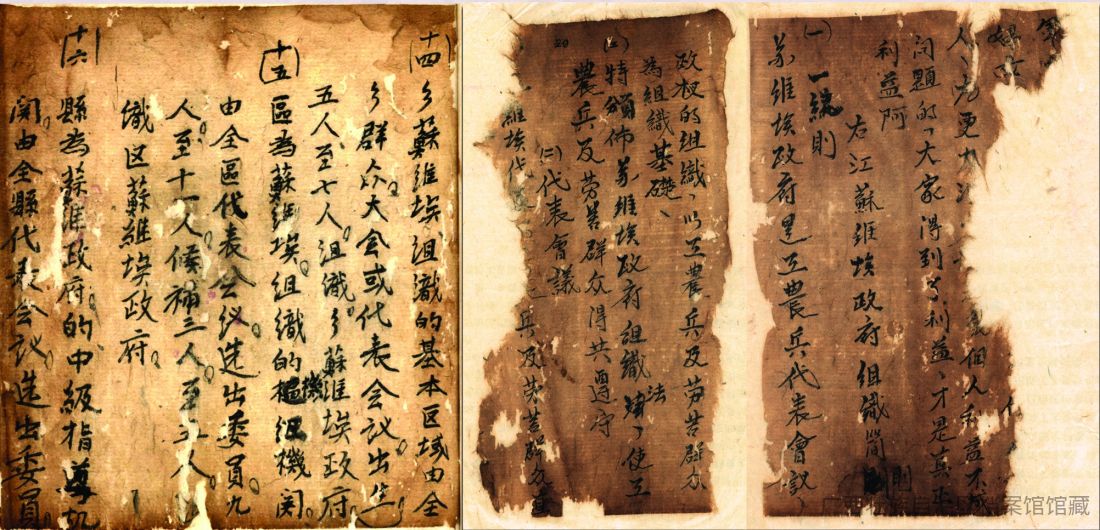 個人利益不成
问题的、大家得到了利益、才是真正
利益阿
右江蘇維埃政府组織简则
一總則
(一)苏維埃政府是工農兵代表會議
政权的组織、以工農兵及劳苦群众
為组織基礎、
(2)特頒佈苏維埃政府组織法、使工
農兵及劳苦群众得共遵守
(二)代表會議
維埃代 兵及劳苦群众
(十四)乡蘇維埃组識的基本区域由全
乡群众大会或代表会议出生
五人至七人组識乡蘇維埃政府。
(十五)區為蘇維埃组織的機関
由全區代表会议选出委員九
人至十一人候補三人至五人
識区蘇維埃政府。
(十六)縣為蘇維政府的中級指導机
関由全縣代表会议选出委員
案馆馆藏